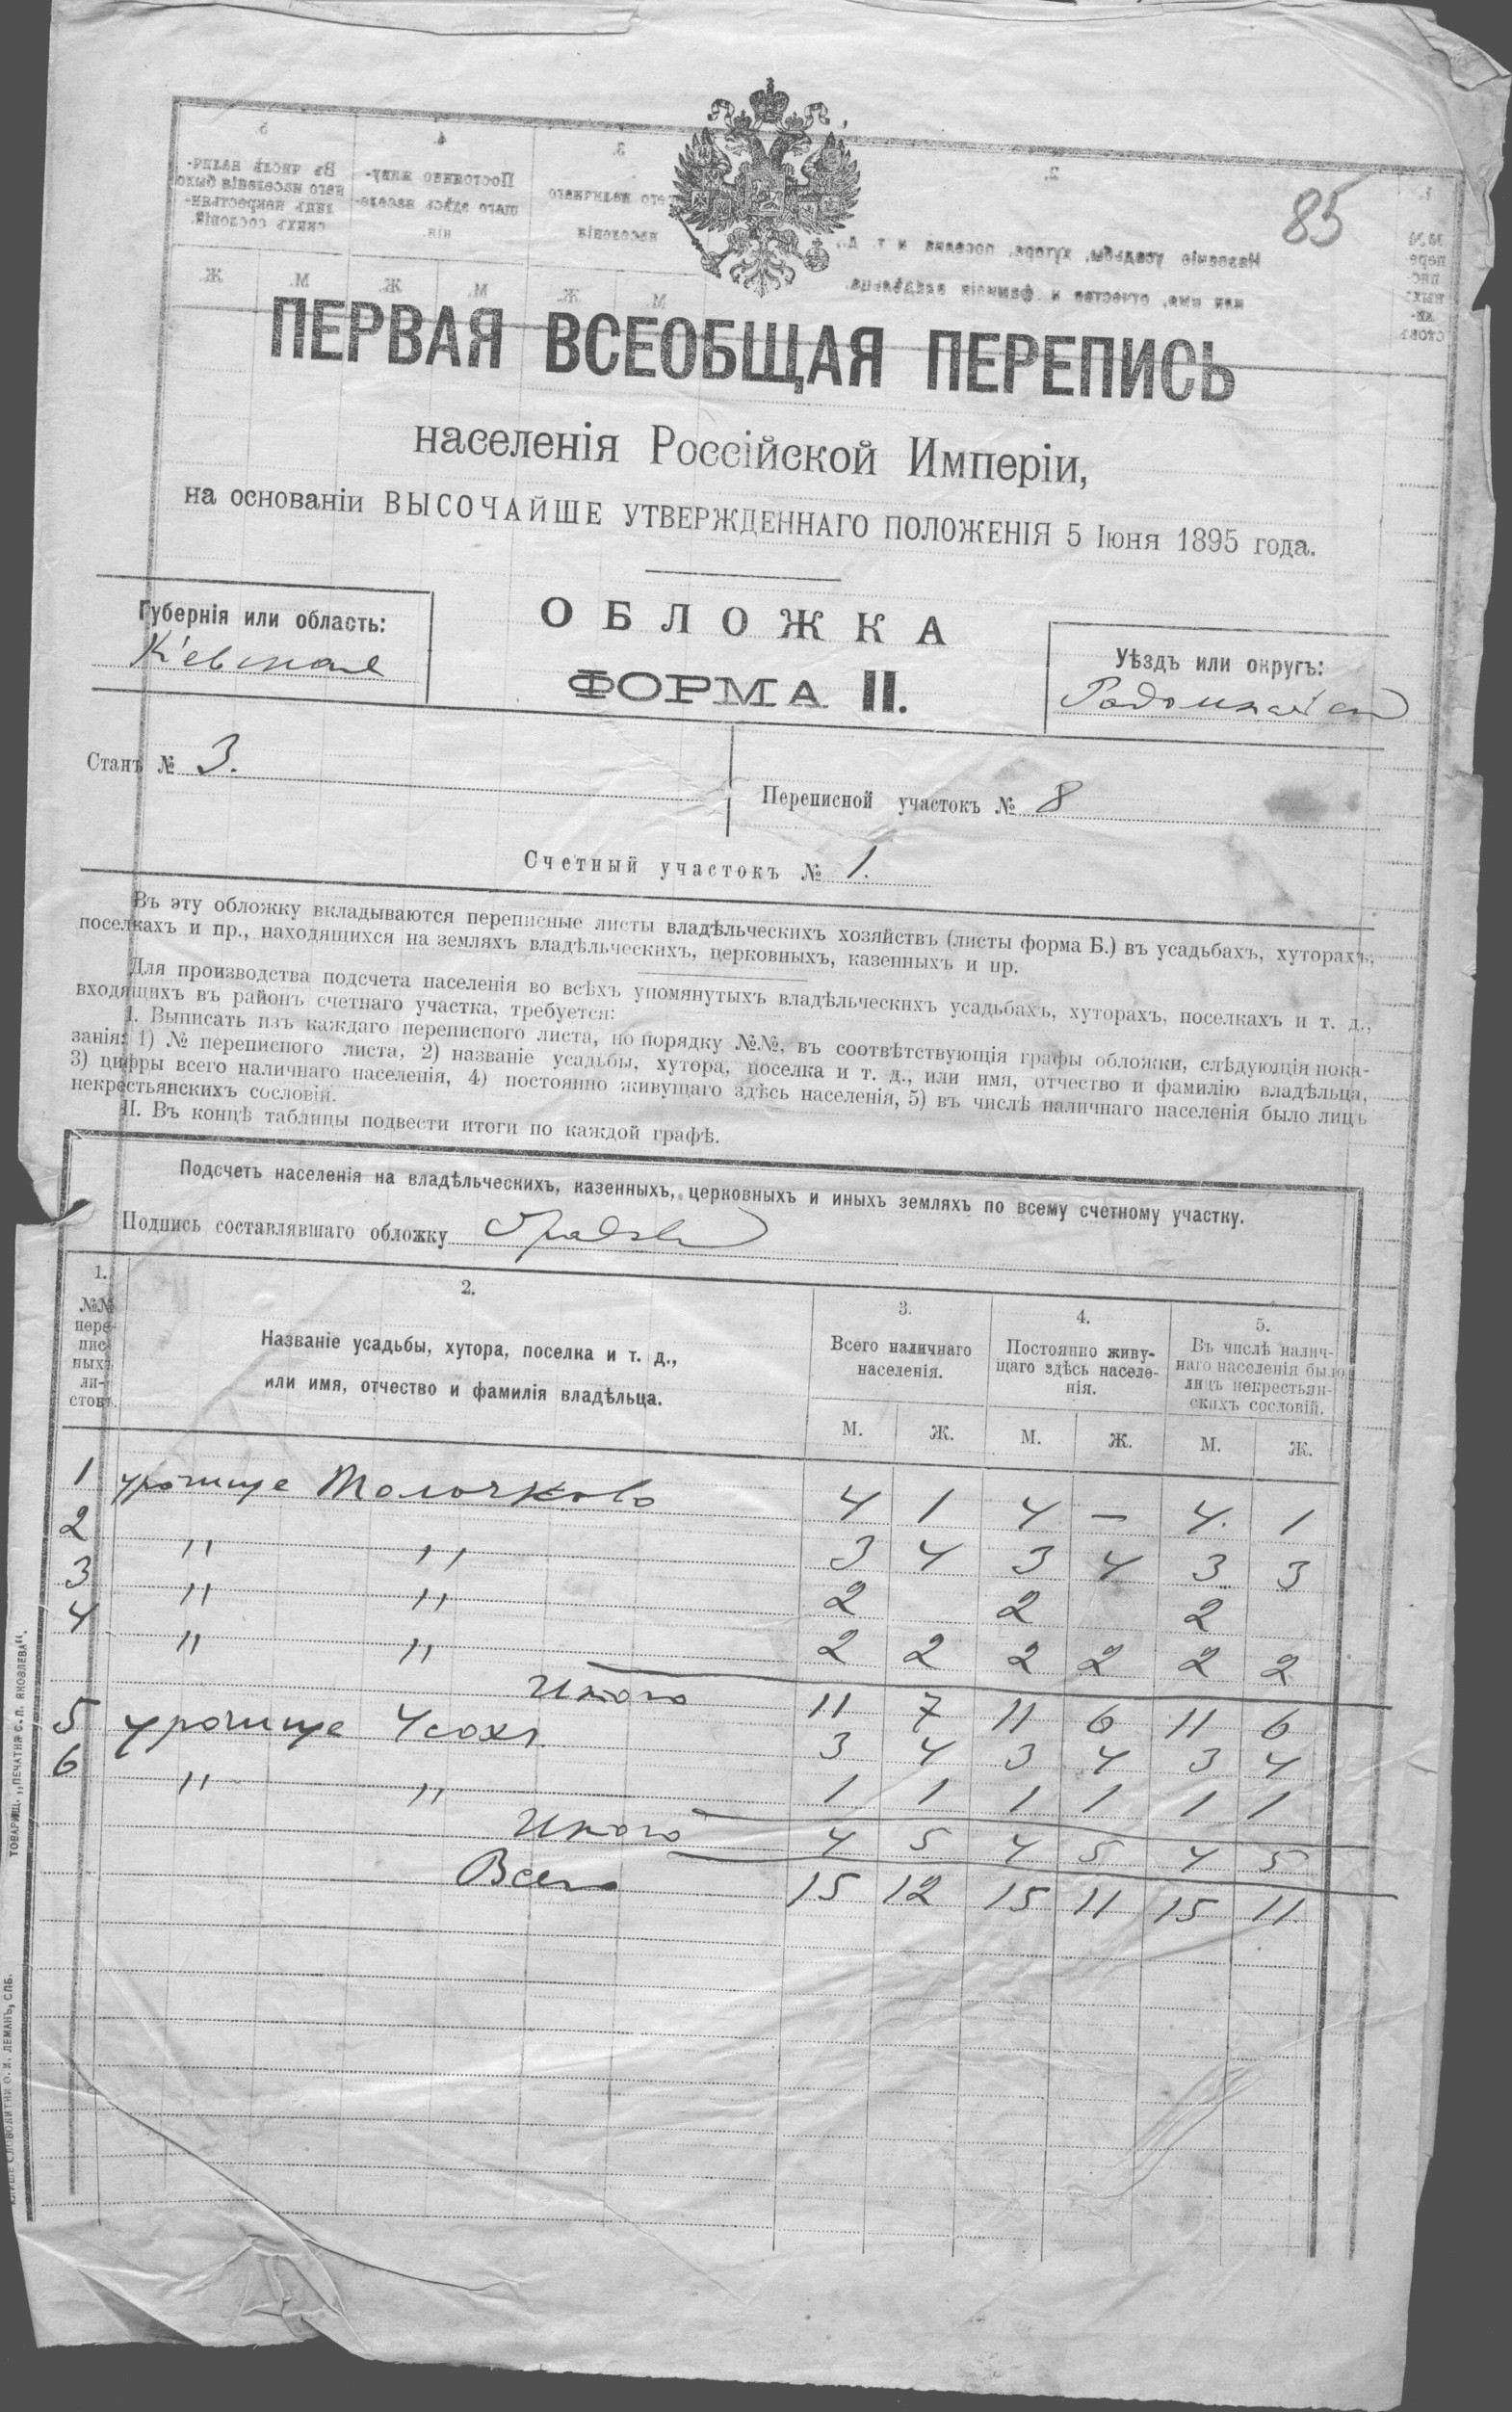 85
ПЕРВАЯ ВСЕОБЩАЯ ПЕРЕПИСЬ
населенія Россійской Имперіи,
на основаніи ВЫСОЧАЙШЕ УТВЕРЖДЕННАГО ПОЛОЖЕНІЯ 5 Іюня 1895 года.
Губернія или область:
Кіевская
ОБЛОЖКА
ФОРМА II.
Уѣздъ или округъ:
Станъ № 3.
Переписной участокъ № 8
Счетный участокъ № 1.
Въ эту обложку вкладываются переписные листы владѣльческихъ хозяйствъ (листы форма Б.) въ усадьбахъ, хуторахъ,
поселкахъ и пр., находящихся на земляхъ владѣльческихъ, церковныхъ, казенныхъ и пр.
Для производства подсчета населенія во всѣхъ упомянутыхъ владѣльческихъ усадьбахъ, хуторахъ, поселкахъ и т. д.,
входящихъ въ районъ счетнаго участка, требуется:
I. Выписать изъ каждаго переписного листа, по порядку №№, въ соотвѣтствующія графы обложки, слѣдующія пока-
занія: 1) № переписного листа, 2) названіе усадьбы, хутора, поселка и т. д., или имя, отчество и фамилію владѣльца,
3) цифры всего наличнаго населенія, 4) постоянно живущаго здѣсь населенія, 5) въ числѣ наличнаго населенія было лицъ
некрестьянскихъ сословій.
II. Въ концѣ таблицы подвести итоги по каждой графѣ.
Подсчетъ населенія на владѣльческихъ, казенныхъ, церковныхъ и иныхъ земляхъ по всему счетному участку.
Подпись составлявшаго обложку
1.
№№ пере-
пис
ныхъ
ли-
стовъ.
2.
Названіе усадьбы, хутора, поселка и т. д.,
или имя, отчество и фамилія владѣльца.
3.
Всего наличнаго
населенія.
4.
Постоянно живу-
щаго здѣсь населе-
нія.
5.
Въ числѣ налич-
наго населенія было
лицъ некрестьян-
скихъ сословій.
М. Ж. М. Ж. М. Ж.
1 урочище 4 1 4 — 4. 1
2 " " 3 4 3 4 3 3
3 " " 2 2 2
4 " " 2 2 2 2 2 2
Итого 11 7 11 6 11 6
5 урочище 3 4 3 4 3 4
6 " " 1 1 1 1 1 1
Итого 4 5 4 5 4 5
Всего 15 12 15 11 15 11.
ТОВАРИЩ. „ПЕЧАТНЯ С. П. ЯКОВЛЕВА“.